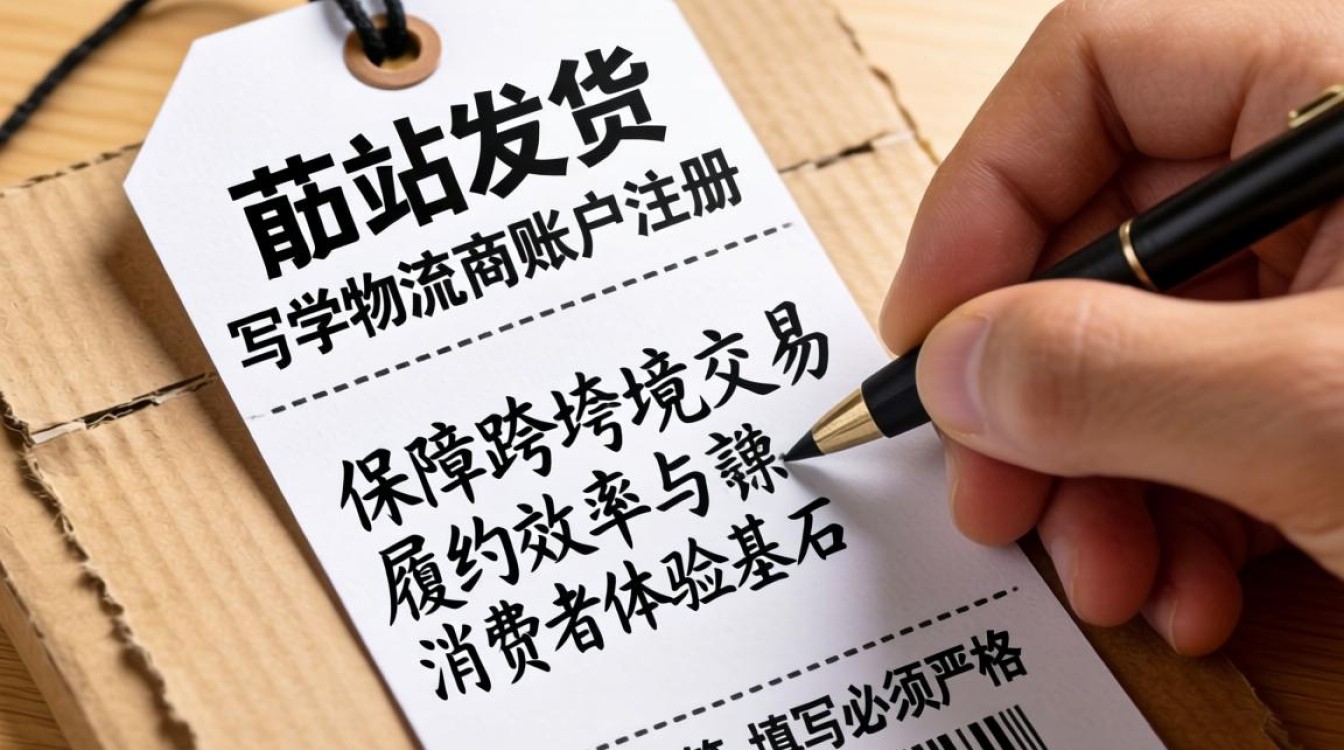 站发货
写学物流商账户注册
保障跨垮境交易
履约效率与
消费者体验基石
填写必须严格